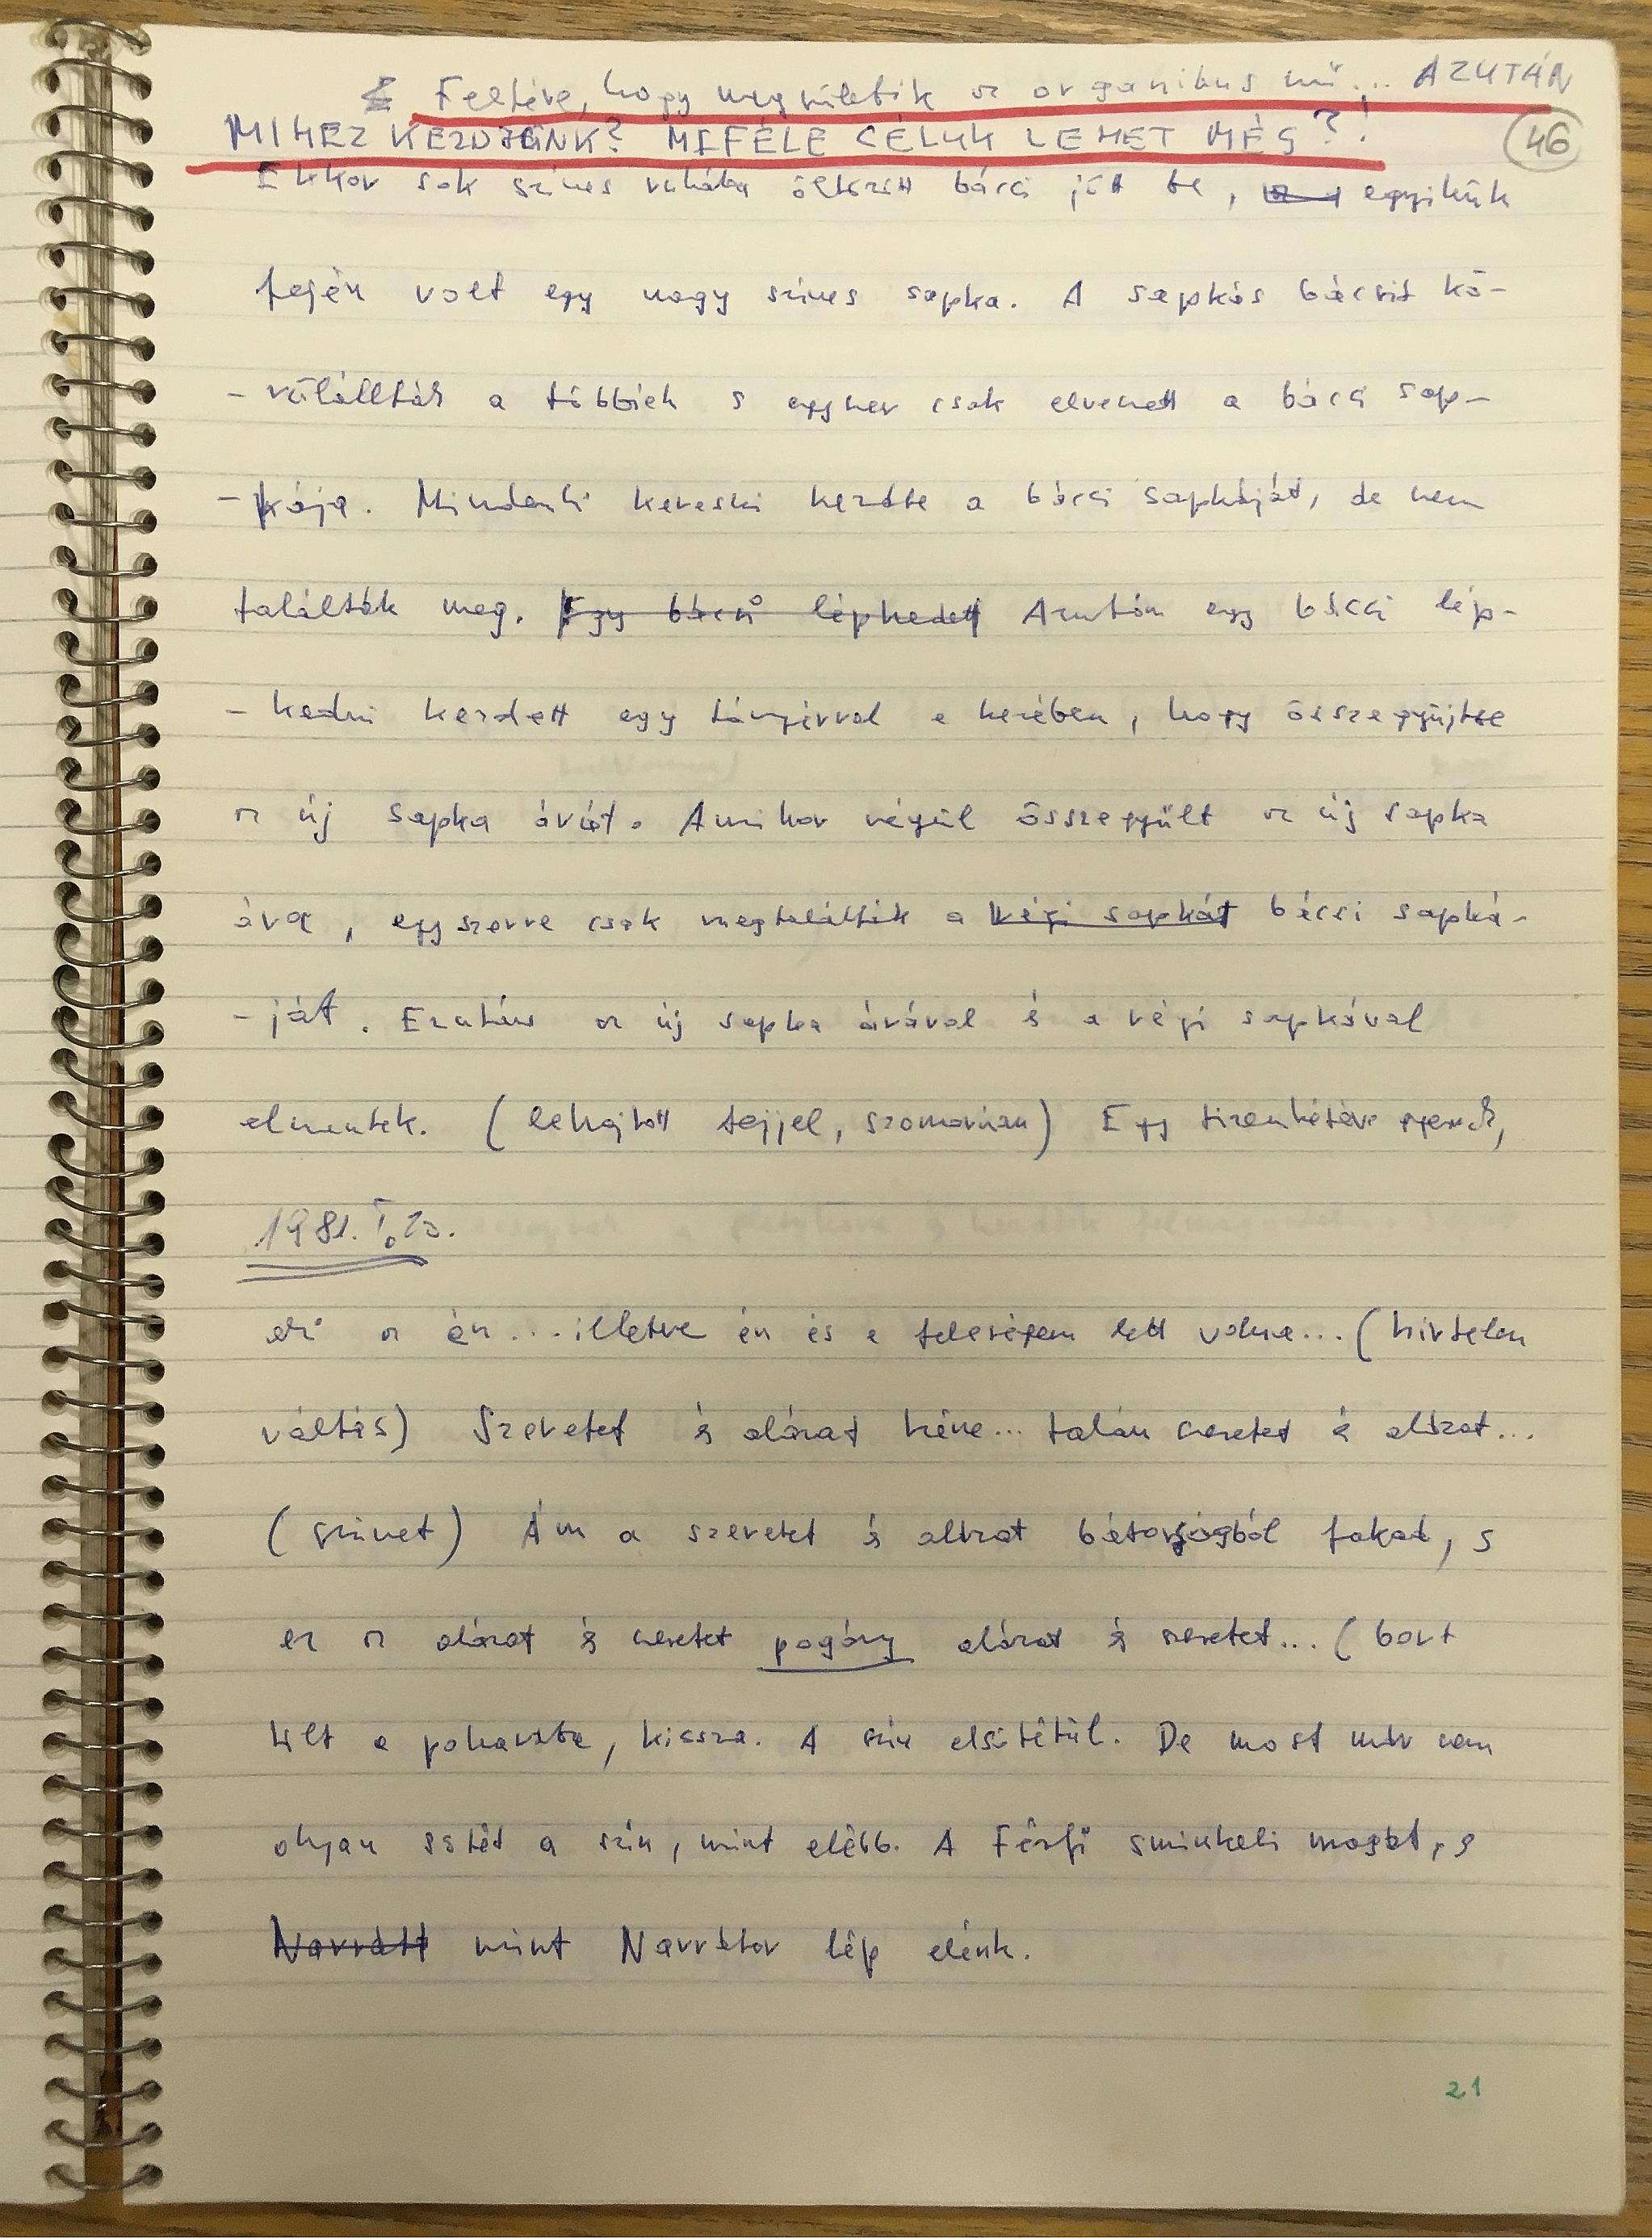 Feltéve, hogy megszületik az organikus mű... AZUTÁN
MIHEZ KEZDJÜNK? MIFÉLE CÉLUK LEHET MÉG?!
46
Ekkor sok színes ruhába öltözött bácsi jött be, egyikük
fején volt egy nagy színes sapka. A sapkás bácsit kö-
- rülállták a többiek s egyszer csak elveszett a bácsi sap-
- kája. Mindenki keresni kezdte a bácsi sapkáját, de nem
találták meg. Egy bácsi lépkedett Azután egy bácsi lép-
- kedni kezdett egy tányérral a kezében, hogy összegyűjtse
az új sapka árát. Amikor végül összegyűlt az új sapka
ára, egyszerre csak megtalálták a régi sapkát bácsi sapká-
- ját. Ezután az új sapka árával és a régi sapkával
elmentek. (lehajtott fejjel, szomorúan) Egy tizenhétéves gyerek,
1981. I. 23.
aki az én... illetve én és a feleségem lett volna... (hirtelen
váltás) Szeretet és alázat kéne... talán szeretet és alázat...
(szünet) Ám a szeretet és alázat bátorságból fakad, s
ez az alázat és szeretet pogány alázat és szeretet... (bort
tölt a pohárba, kissza. A szín elsötétül. De most már nem
olyan sötét a szín, mint előbb. A Férfi sminkeli magát, s
Narrátt mint Narrátor lép elénk.
21